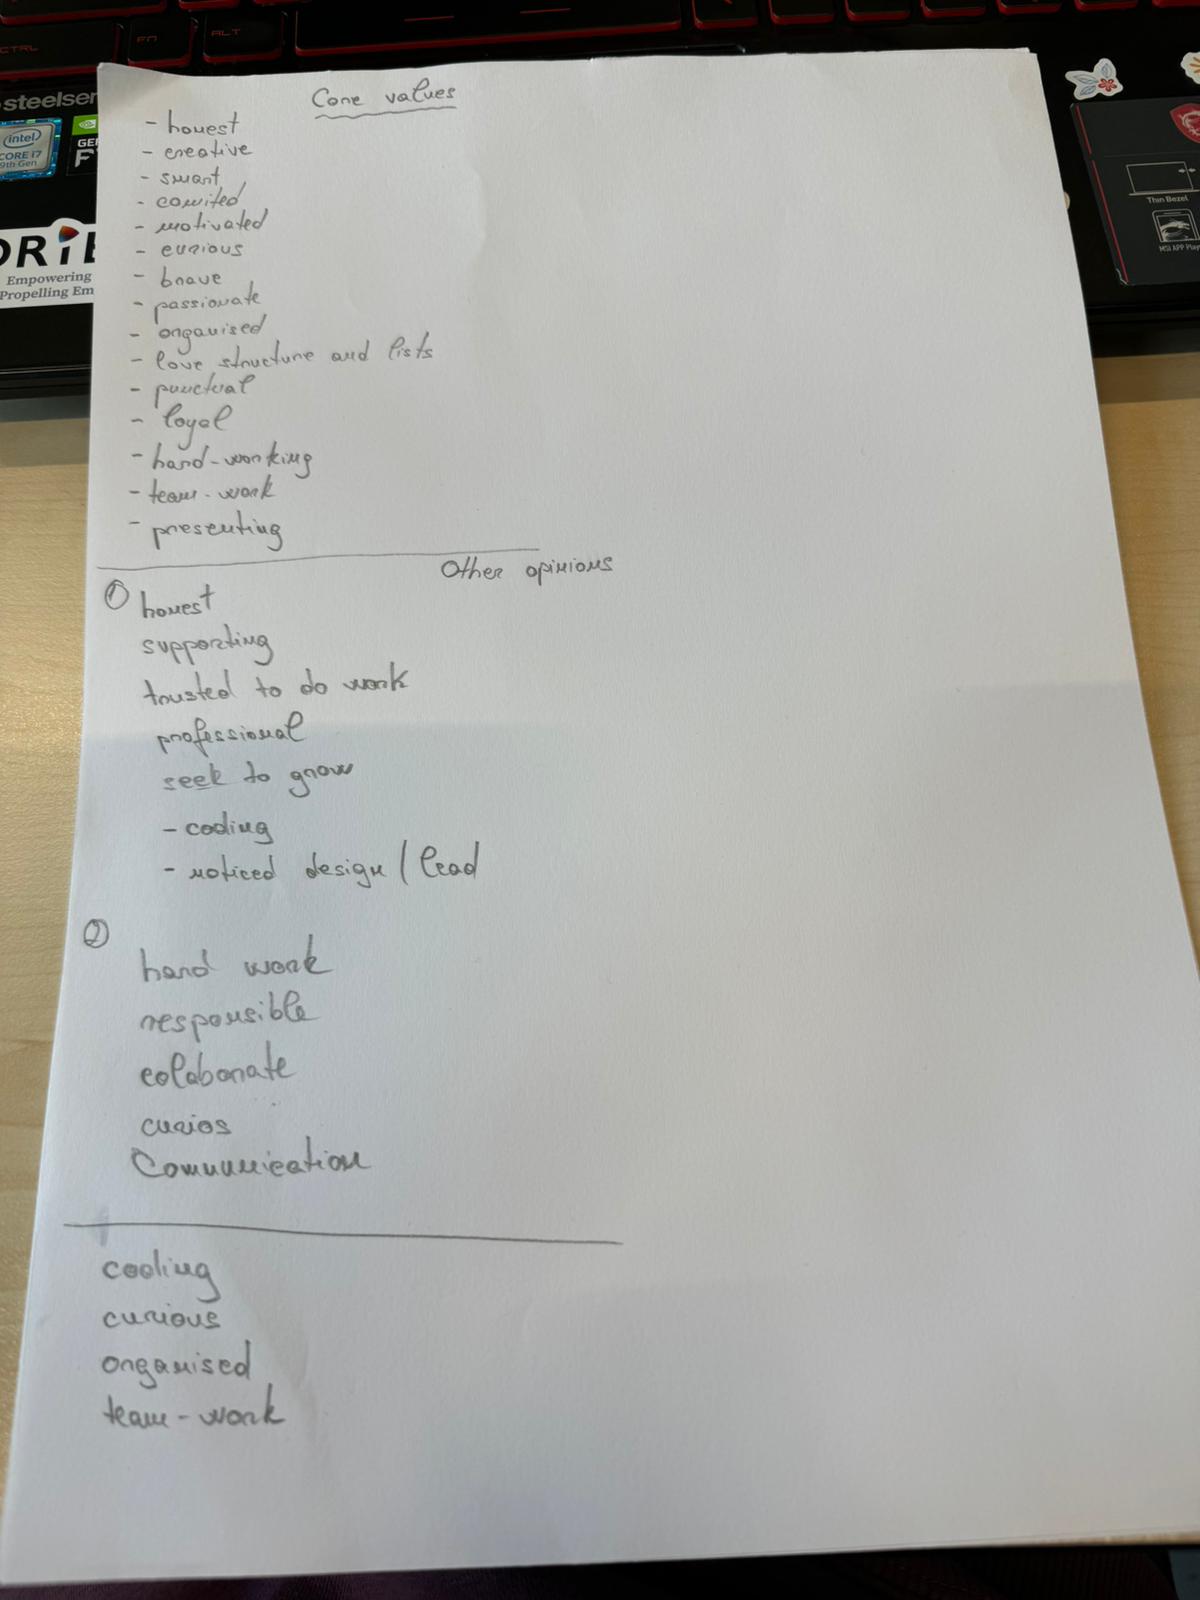 CTRL
FN
ALT
steelser
intel
CORE i7
9th Gen
GE
F
ORIE
Empowering
Propelling Em
Thin Bezel
MSI APP Playe
Core values
- honest
- creative
- smart
- comited
- motivated
- curious
- brave
- passionate
- organised
- love structure and lists
- punctual
- loyal
- hard-working
- team-work
- presenting
Other opinions
1 honest
supporting
trusted to do work
professional
seek to grow
- coding
- noticed design / lead
2
hard work
responsible
colaborate
curios
Communication
coding
curious
organised
team-work